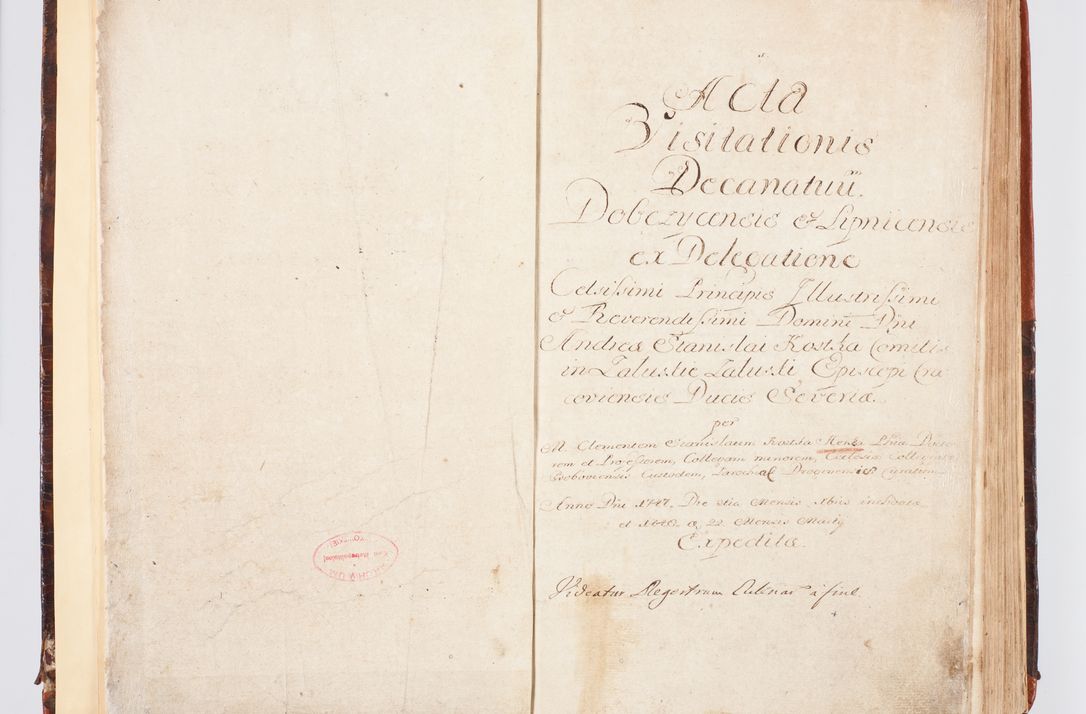 Acta
Visitationis
Decanatuũ
Dobczycensis & Lipnicensis
ex Delegatione
Celsissimi Principis Illustrissimi
& Reverendissimi Domini Dni
Andreæ Stanislai Kostka Comitis
in Załuskie Załuski Episcopi Cra
coviensis Ducis Severiæ.
per
M. Clementem Stanislaum Kostka Herka Phiæ Docto
rem et Professorem, Collegam minorem, Ecclesiæ Collegiatæ
Boboviensis Custodem, Parochialis Droginensis Curatum
Anno Dni 1747. Die Mensis Xbris inchoata
et 1748. a 22. Mensis Martij
Expedita.
Videatur Regestrum a fine.